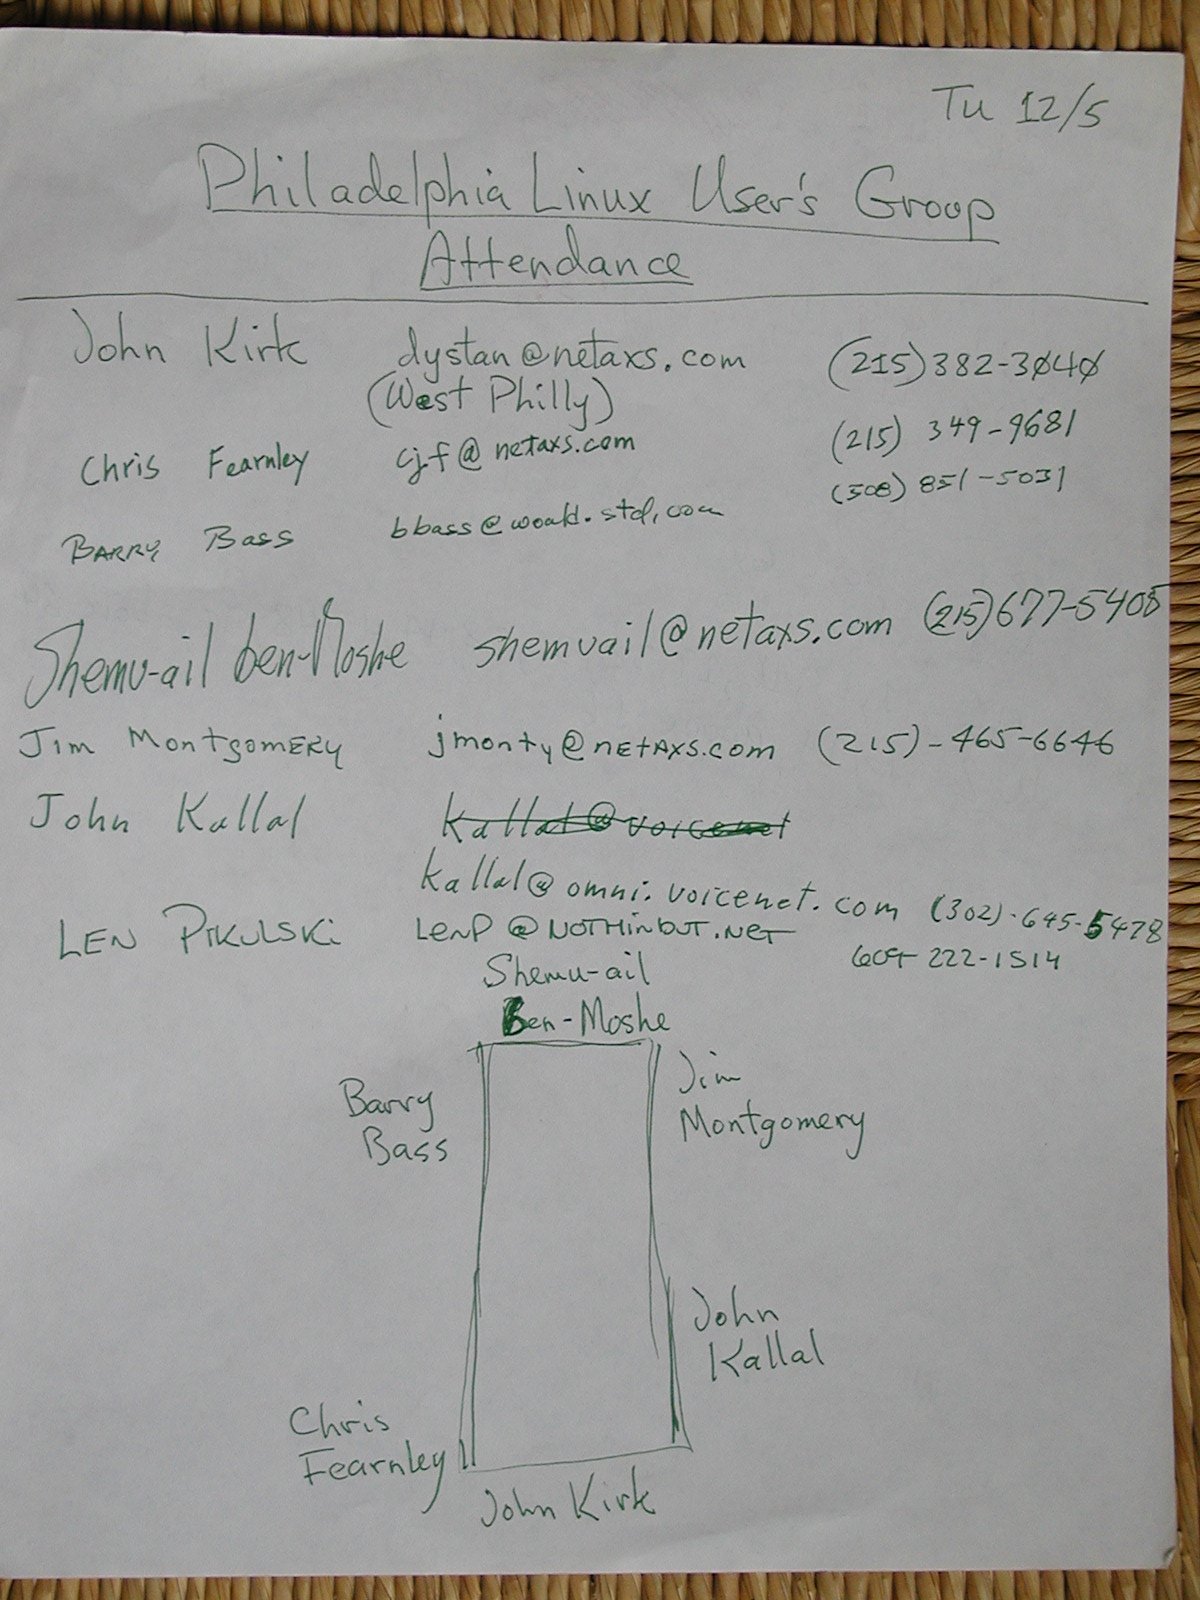 Tu 12/5
Philadelphia Linux User's Group
Attendance
John Kirk dystan@netaxs.com (215) 382-3040
(West Philly)
Chris Fearnley cjf@netaxs.com (215) 349-9681
Barry Bass (508) 851-5031
Shemu-ail ben-Moshe shemuail@netaxs.com (215) 677-5405
Jim Montgomery jmonty@netaxs.com (215)-465-6646
John Kallal kallal@voicenet
kallal@omni.voicenet.com (302)-645-5478
Len Pikulski LenP@nothinbut.net 609 222-1514
Shemu-ail
Ben-Moshe
Barry
Bass
Jim
Montgomery
John
Kallal
Chris
Fearnley
John Kirk